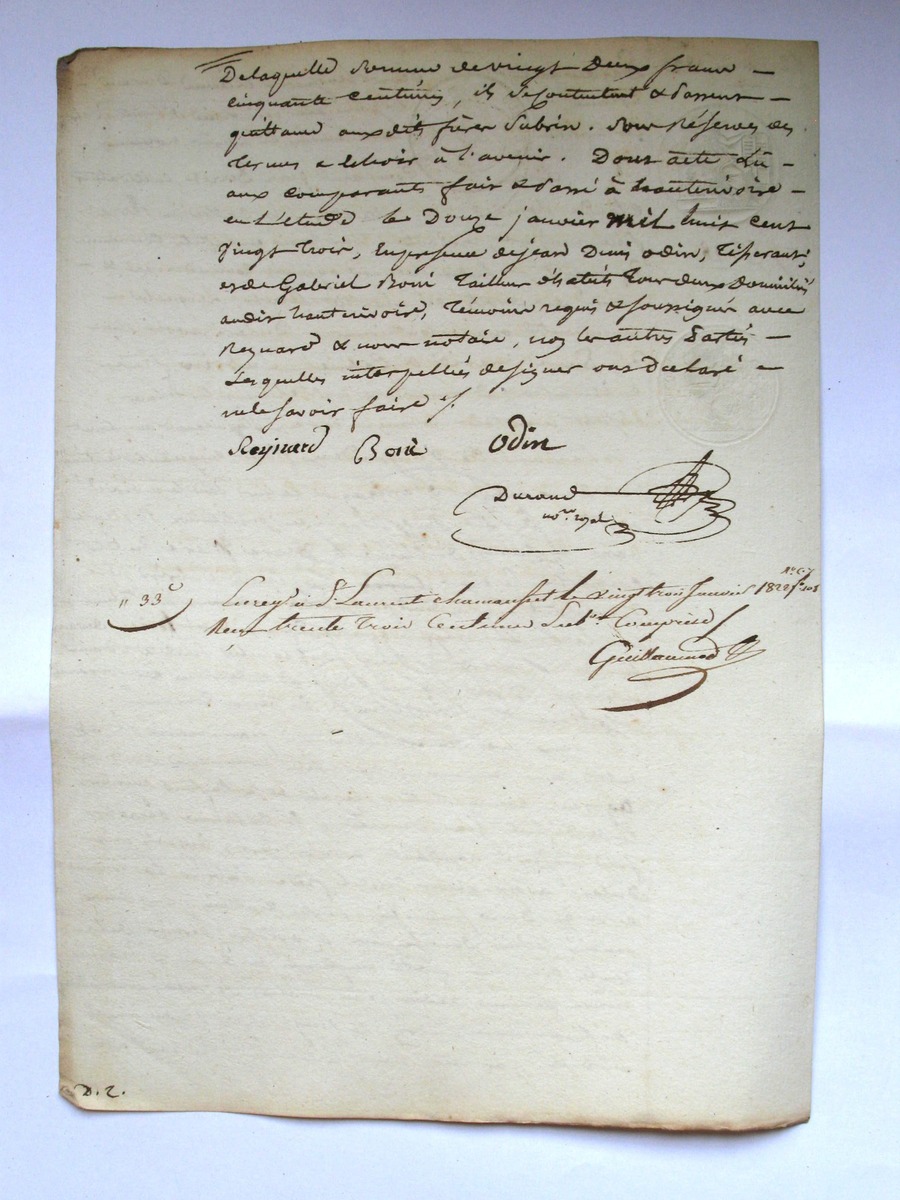 De laquelle somme de vingt Deux francs –
cinquante centimes, ils se contentent & passent –
quittance auxdits frères Subrin. Sous Réserves des
termes a Echoir à l'avenir. Dont acte Lu –
aux comparants fait & passé à hauterivoire –
en L'étude le Douze janvier mil huit cent
Vingt trois, En presence de jean Denis odin, Tisserand,
et de Gabriel Boni Tailleur d'habits tous deux Domiciliés
audit hauterivoire, Témoins requis & soussignés avec
Reynard & nous notaire, non les autres Parties –
Lesquelles interpellées de signer ont Declaré –
ne le savoir faire
Reynard Boni Odin
Durand
no.re royal
" 33 c
Enreg.é à St Laurent chamousset le vingt trois Janvier 182 f.° 101
Reçu trente trois Centimes Sub.on Comprise
Guillaumod
D. 2.